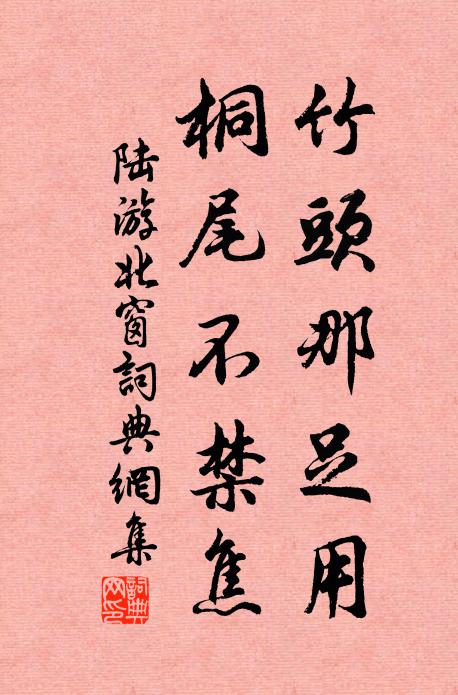 竹頭那足用
桐尾不禁焦
陆游北窗詞典網集
詞典网印